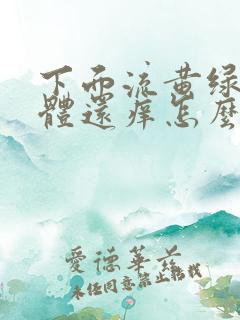 下面流黄绿
體還痒怎麽
愛德華前
未经同意禁止转载